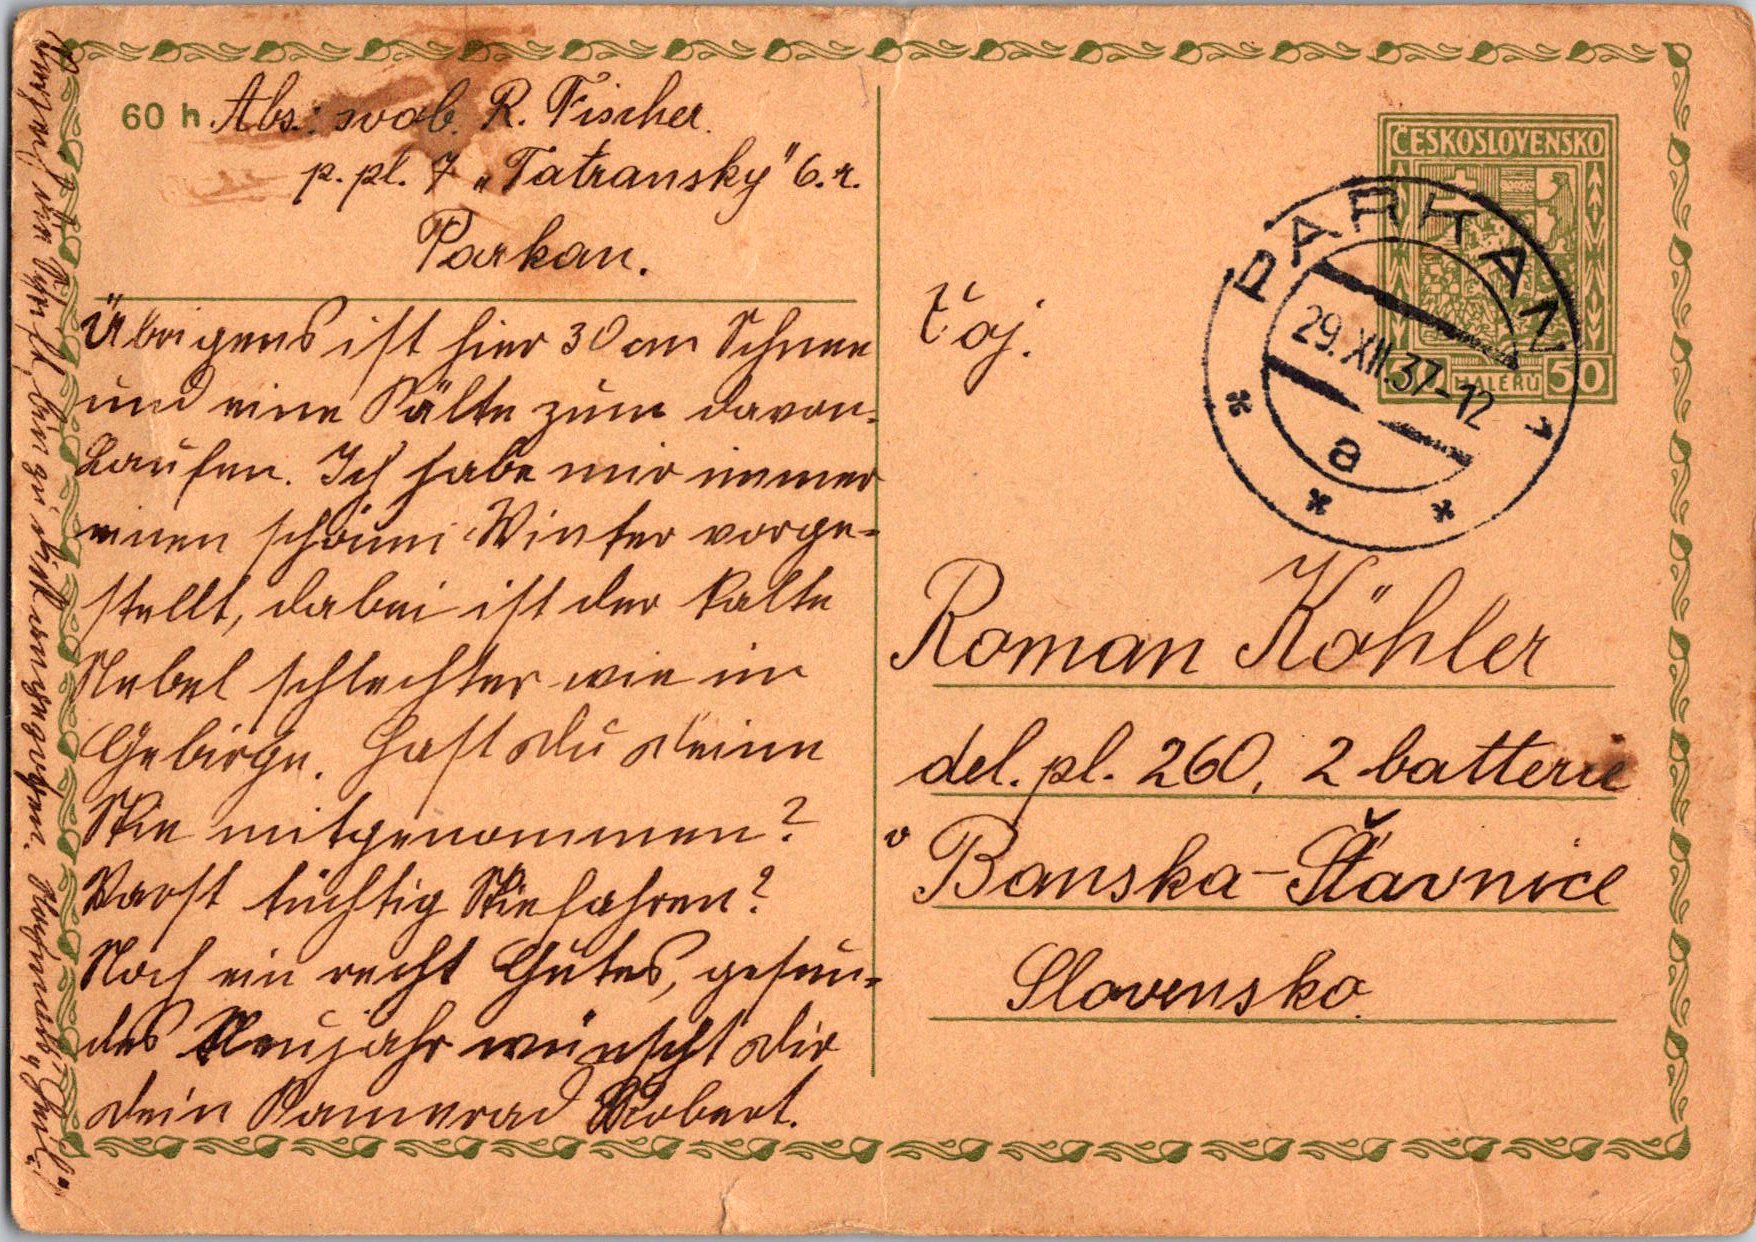 60 h Abs.: svob. R. Fischer.
p. pl. 7 „Tatransky" 6. r.
Parkan.
Übrigens ist hier 30 cm Schnee
und eine Kälte zum davon-
Laufen. Ich habe mir immer
einen schönen Winter vorge-
stellt, dabei ist der kalte
Nebel schlechter wie im
Gebirge. Hast Du Deine
Skie mitgenommen?
Warst tüchtig Skiefahren?
Noch ein recht Gutes, gesun-
des Neujahr wünscht Dir
Dein Kamerad Robert.
ČESKOSLOVENSKO
50 HALÉŘŮ 50
PARKAN
29.XII.37-12
a
Roman Köhler
del. pl. 260, 2 batterie
v Banska-Štavnice
Slovensko.